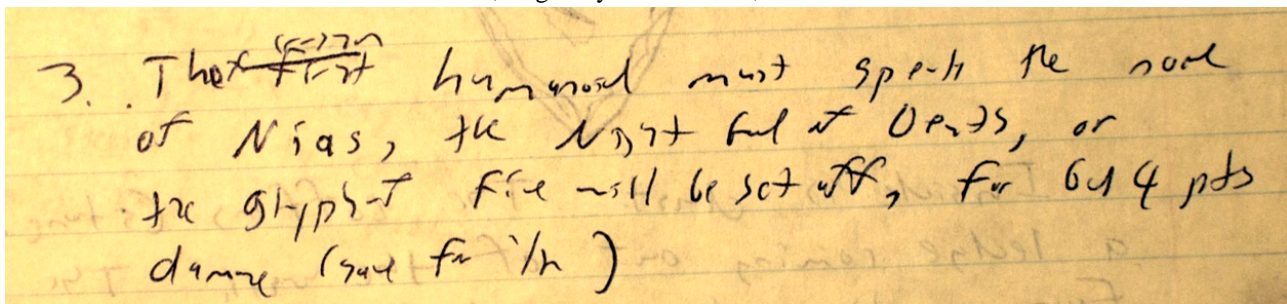 3. That first humanoid must speak the name
of Nias, the Night God of Death, or
the glyph of fire will be set off, for 6d4 pts
damage (save for 1/2)